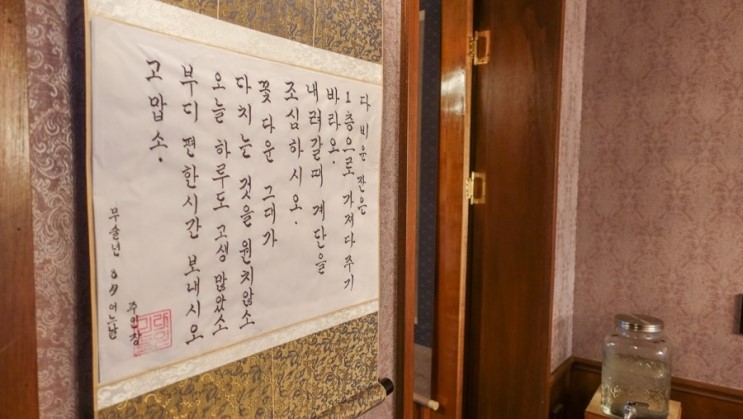 다 비운 잔은
1층으로 가져다주기
바라오.
내려갈때 계단을
조심하시오.
꽃다운 그대가
다치는 것을 원치않소
오늘 하루도 고생 많았소
부디 편한시간 보내시오
고맙소.
무술년 8月 어느날
주인장